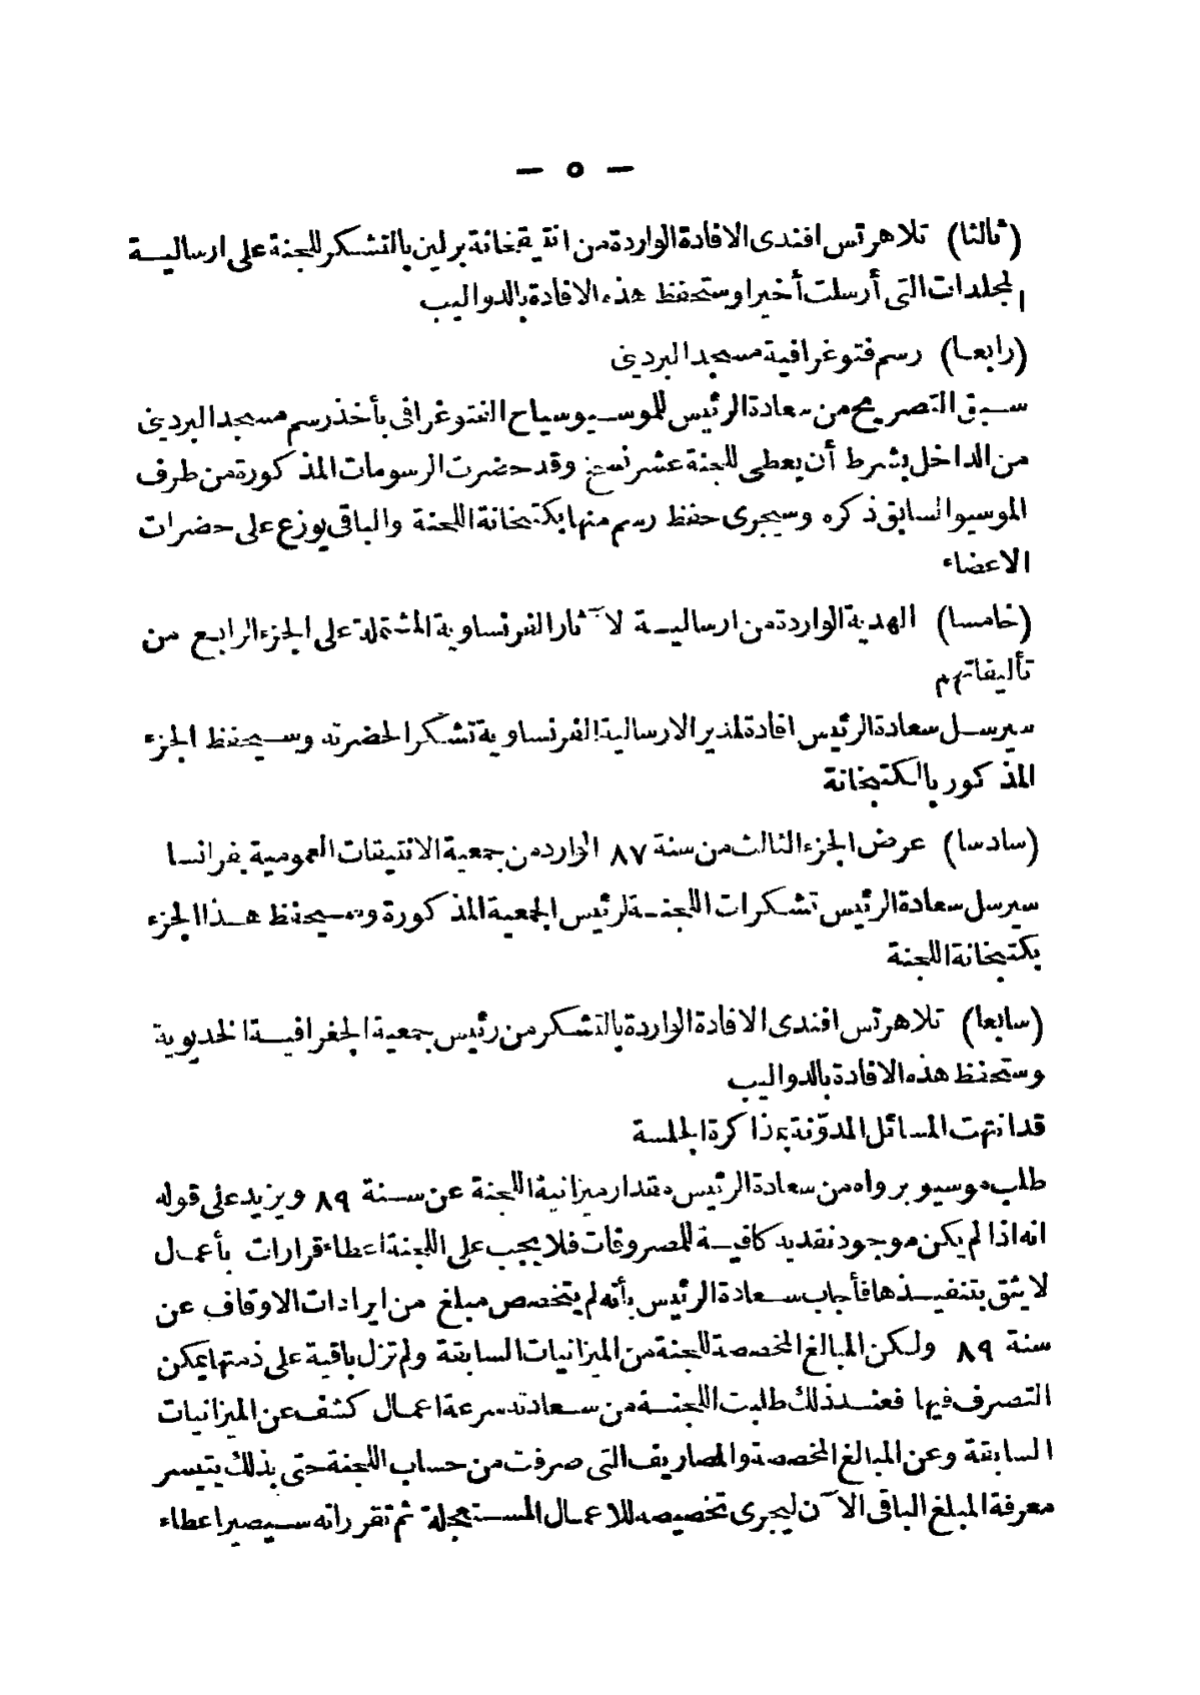 — ٥ —
(ثالثا) تلا هرتس افندى الافادة الواردة من انتيقخانة برلين بالتشكر للجنة على ارسالية
المجلدات التى أرسلت أخيرا وستحفظ هذه الافادة بالدواليب
(رابعا) رسم فتوغرافية مسجد البردينى
سبق التصريح من سعادة الرئيس للموسيو سياح الفتوغرافى بأخذ رسم مسجد البردينى
من الداخل بشرط أن يعطى للجنة عشر نسخ وقد حضرت الرسومات المذكورة من طرف
الموسيو السابق ذكره وسيجرى حفظ رسم منها بكتبخانة اللجنة والباقى يوزع على حضرات
الاعضاء
(خامسا) الهدية الواردة من ارسالية لآثار الفرنساوية المشتملة على الجزء الرابع من
تأليفاتهم
سيرسل سعادة الرئيس افادة لمدير الارسالية الفرنساوية تشكرا لحضرته وسيحفظ الجزء
المذكور بالكتبخانة
(سادسا) عرض الجزء الثالث من سنة ٨٧ الوارد من جمعية الانتيقات العمومية بفرانسا
سيرسل سعادة الرئيس تشكرات اللجنة لرئيس الجمعية المذكورة وسيحفظ هذا الجزء
بكتبخانة اللجنة
(سابعا) تلا هرتس افندى الافادة الواردة بالتشكر من رئيس جمعية الجغرافية الخديوية
وستحفظ هذه الافادة بالدواليب
قد انتهت المسائل المدوّنة بمذاكرة الجلسة
طلب موسيو برواه من سعادة الرئيس مقدار ميزانية اللجنة عن سنة ٨٩ ويزيد على قوله
انه اذا لم يكن موجود نقديه كافية للمصروفات فلا يجب على اللجنة اعطاء قرارات بأعمال
لا يثق بتنفيذها فأجاب سعادة الرئيس بأنه لم يتخصص مبلغ من ايرادات الاوقاف عن
سنة ٨٩ ولكن المبالغ المخصصة للجنة من الميزانيات السابقة ولم تزل باقية على ذمتها يمكن
التصرف فيها فعند ذلك طلبت اللجنة من سعادته سرعة اعمال كشف عن الميزانيات
السابقة وعن المبالغ المخصصة والمصاريف التى صرفت من حساب اللجنة حتى بذلك يتيسر
معرفة المبلغ الباقى الآن ليجرى تخصيصه للاعمال المستعجلة ثم تقرر انه سيصير اعطاء